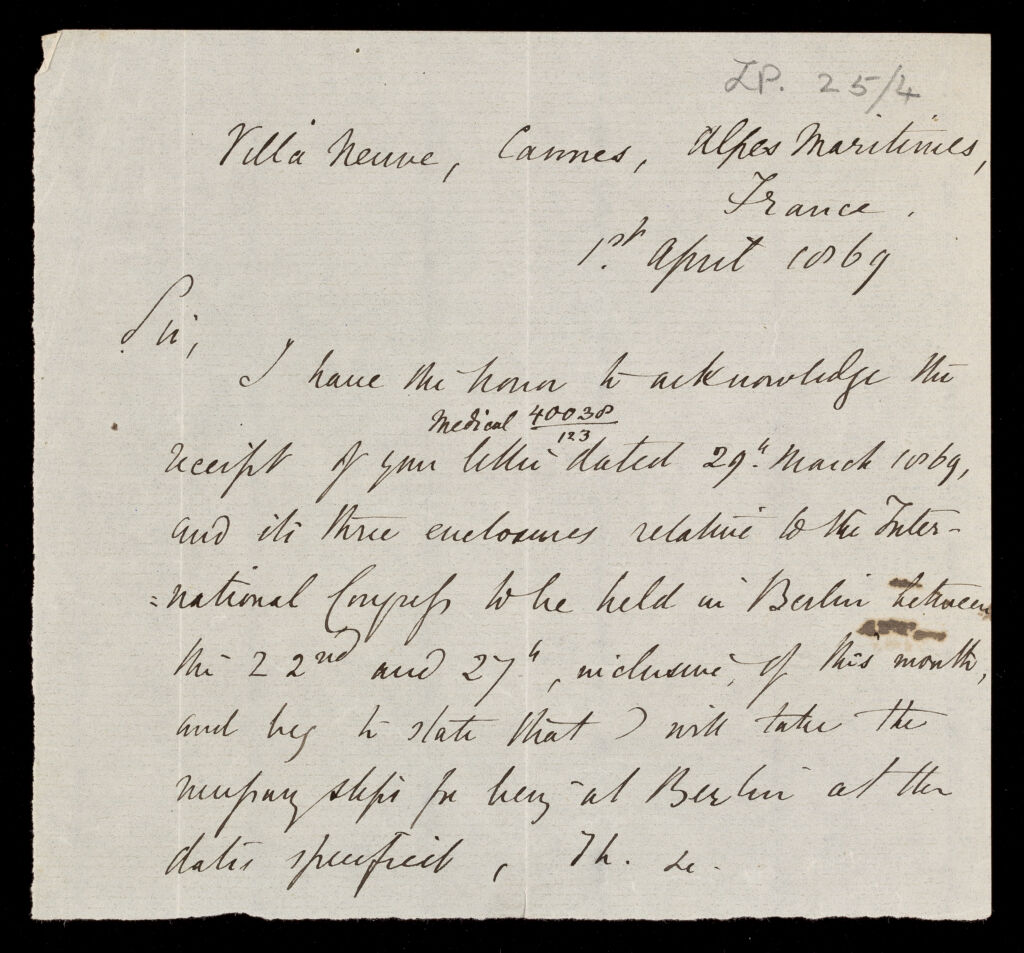 LP. 25/4
Villa Neuve, Cannes, Alpes Maritimes,
France.
1st. April 1869
Sir,
I have the honor to acknowledge the
Medical 40038/123
receipt of your letter dated 29th. March 1869,
and its three enclosures relative to the Inter-
=national Congress to be held in Berlin between
the 22nd and 27th, inclusive, of this month,
and beg to state that I will take the
necessary steps for being at Berlin at the
dates specified,